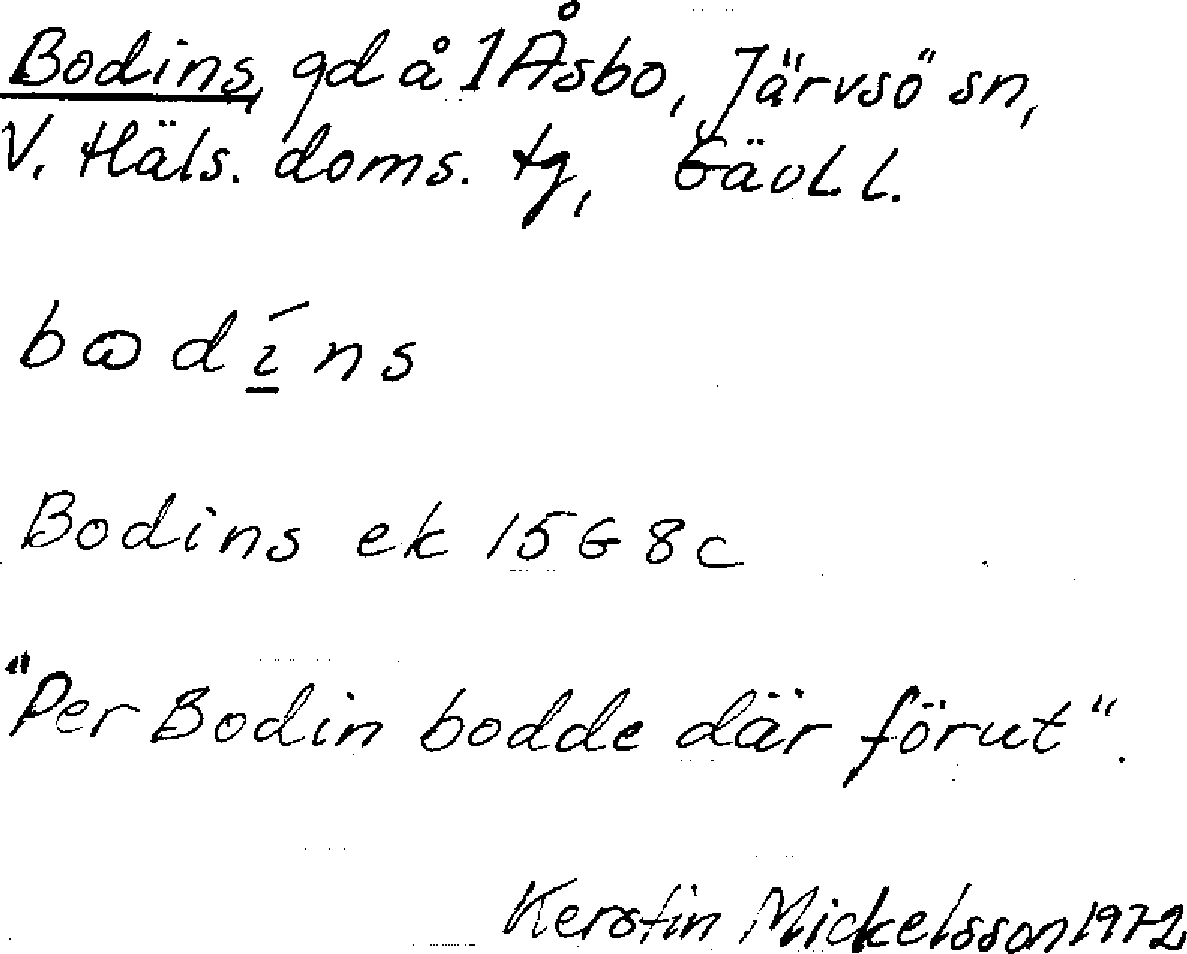 Bodins, gd å 1 Åsbo, Järvsö sn,
V. Häls. doms. tg, Gävl l.
bⱺdí̲ns
Bodins ek 15G8c
"Per Bodin bodde där förut".
Kerstin Mickelsson 1972